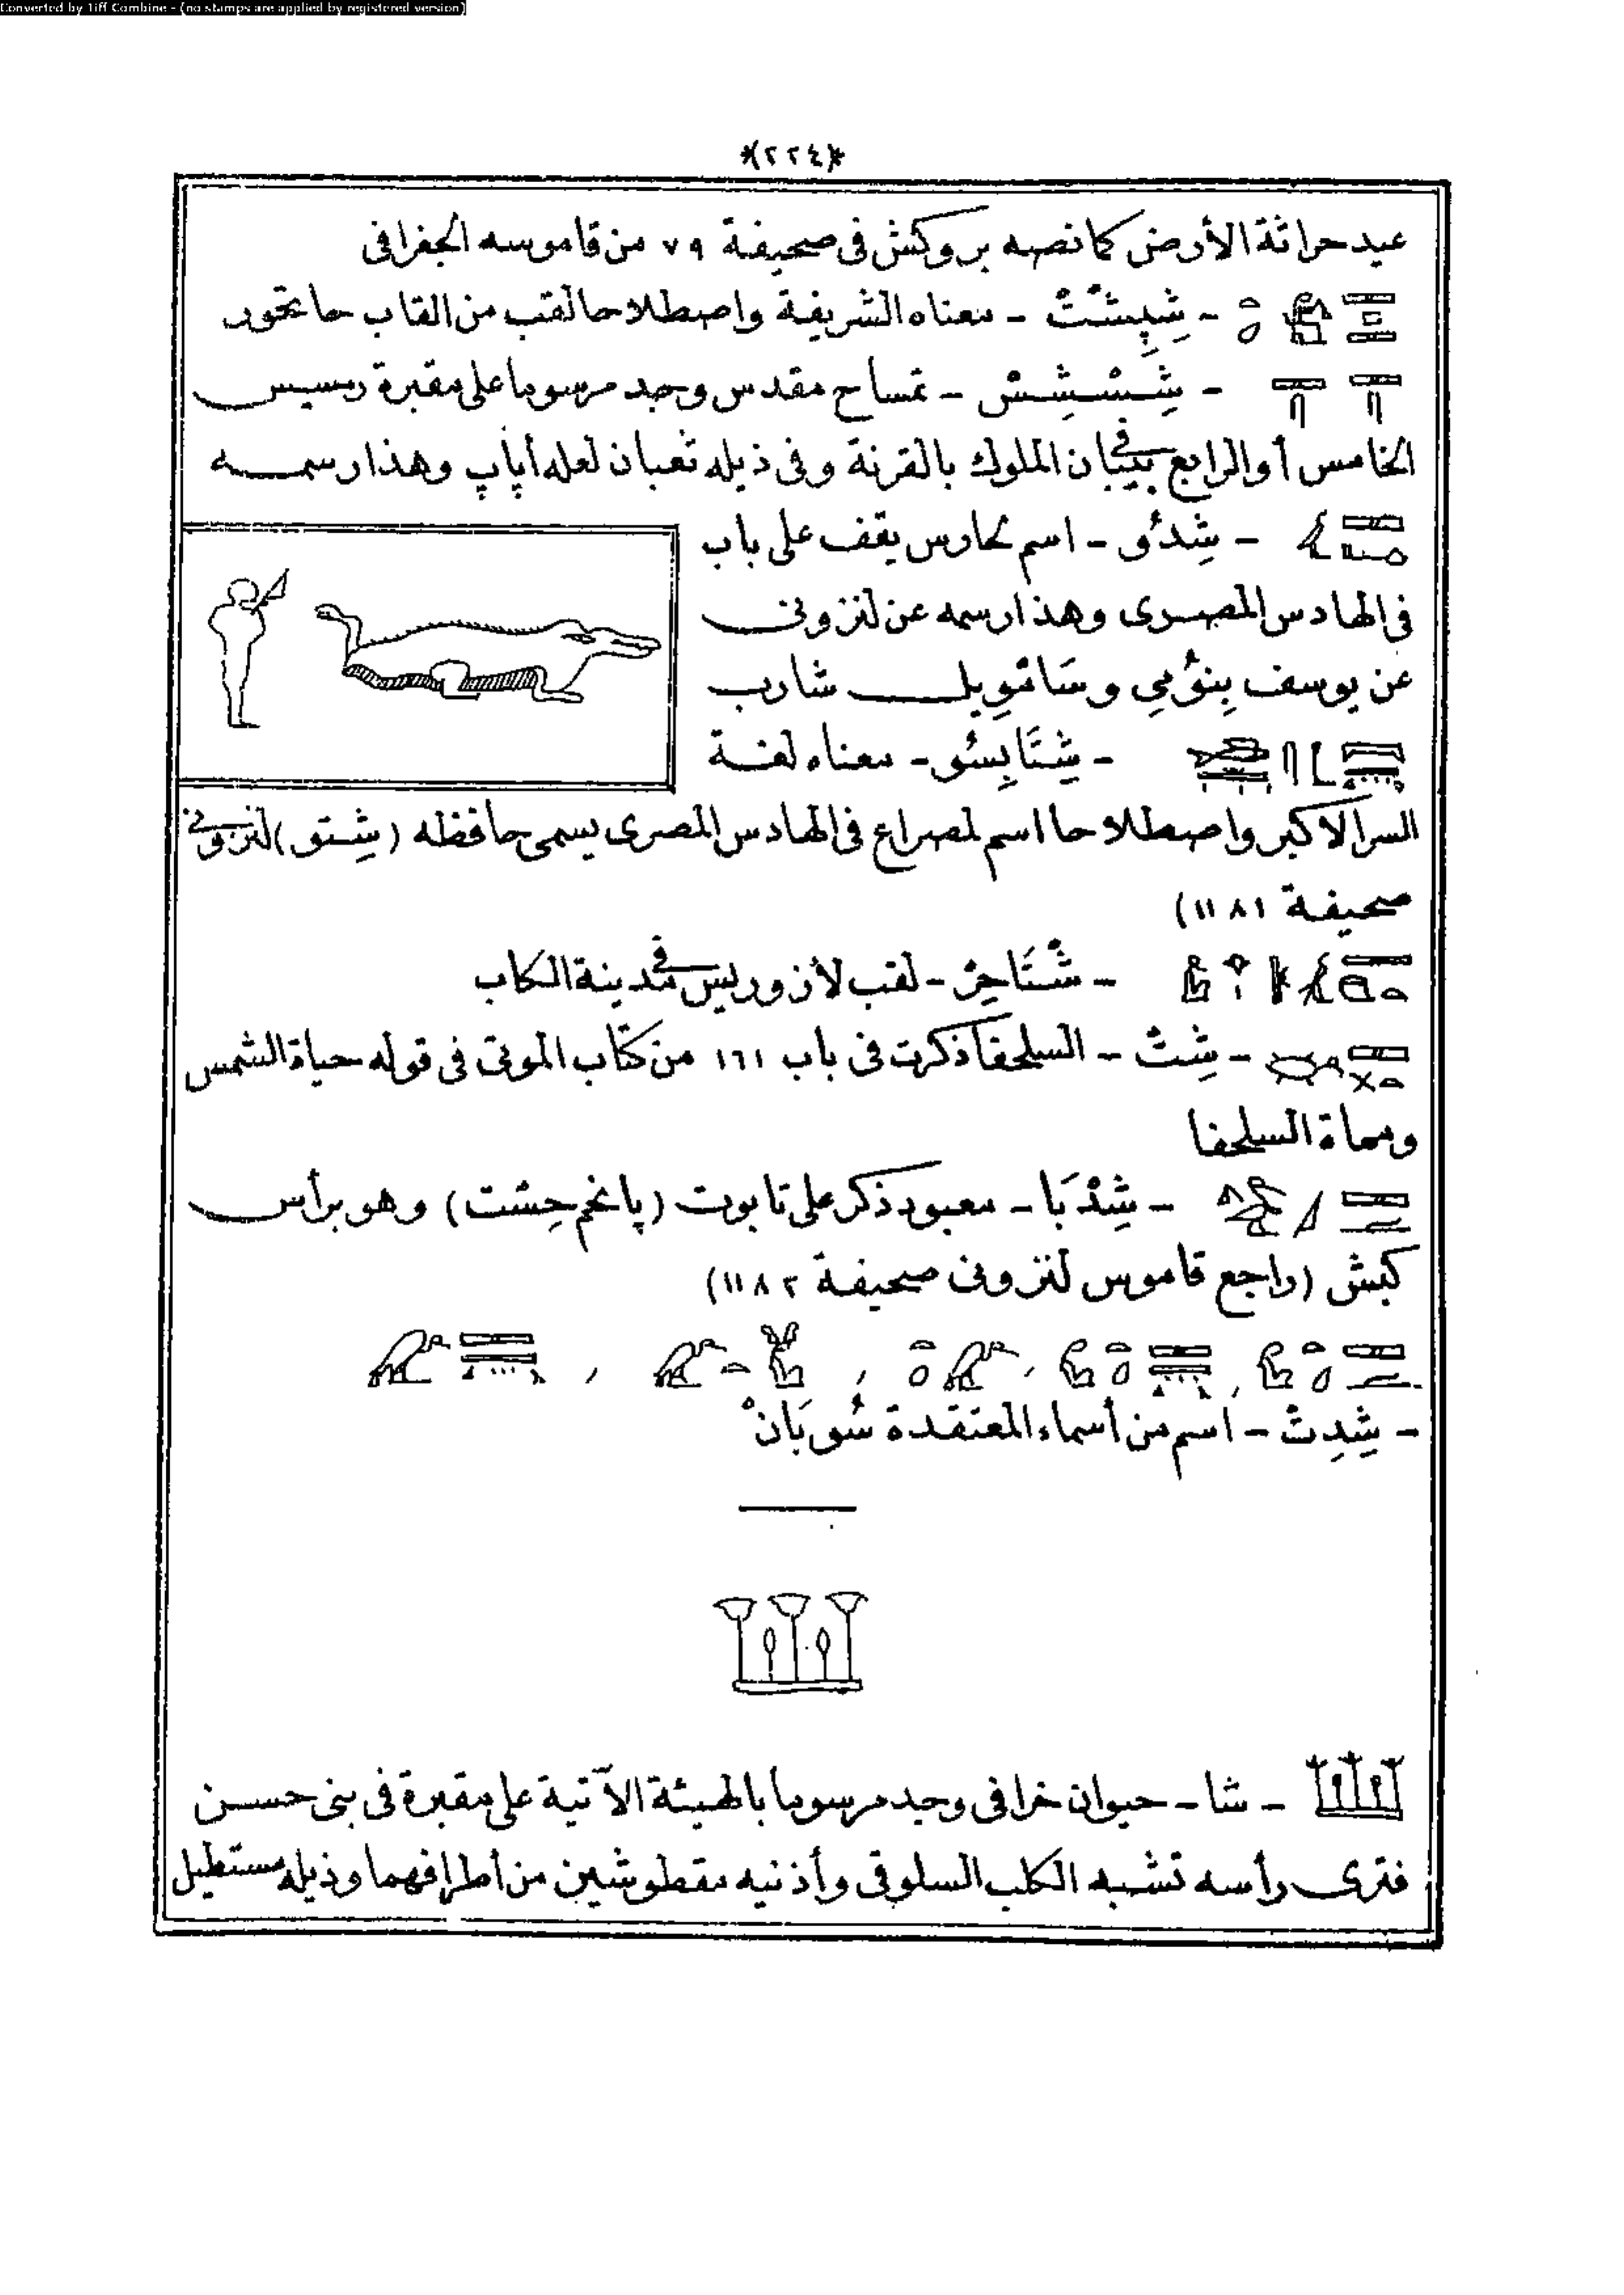 Converted by Tiff Combine - (no stamps are applied by registered version)
*(٢٢٤)*
عيد حراثة الأرض كما نصه بروكش فى صحيفة ٧٩ من قاموسه الجغرافى
- شِپِشْتْ - معناه الشريفة واصطلاحا لقب من القاب حاتحور
- شِسْشِسْ - تمساح مقدس وجد مرسوما على مقبرة رمسيس
الخامس أو الرابع فى بيبان الملوك بالقرنة وفى ذيله ثعبان لعله أپاپ وهذا رسمه
- شِدئو - اسم لحارس يقف على باب
فى الهادس المصرى وهذا رسمه عن لنزونى
عن يوسف بِنُومِى وسَامُويل شارب
- شِتَابِسُو - معناه لغة
السر الاكبر واصطلاحا اسم لمصراع فى الهادس المصرى يسمى حافظه (شِتو) لنزونى
صحيفة ١١٨١)
- شْتَاحِرْ - لقب لأزوريس فى مدينة الكاب
- شِتْ - السلحفا ذكرت فى باب ١٦١ من كتاب الموتى فى قوله حياة الشمس
ومماة السلحفا
- شِدْبَا - معبود ذكر على تابوت (پانحم حِسْت) وهو برأس
كبش (راجع قاموس لنزونى صحيفة ١١٨٢)
- شِدِتْ - اسم من أسماء المعتقدة سُوبَانْ
- شا - حيوان خرافى وجد مرسوما بالهيئة الآتية على مقبرة فى بنى حسن
فترى رأسه تشبه الكلب السلوقى وأذنيه مقطوشين من أطرافهما وذيله مستطيل